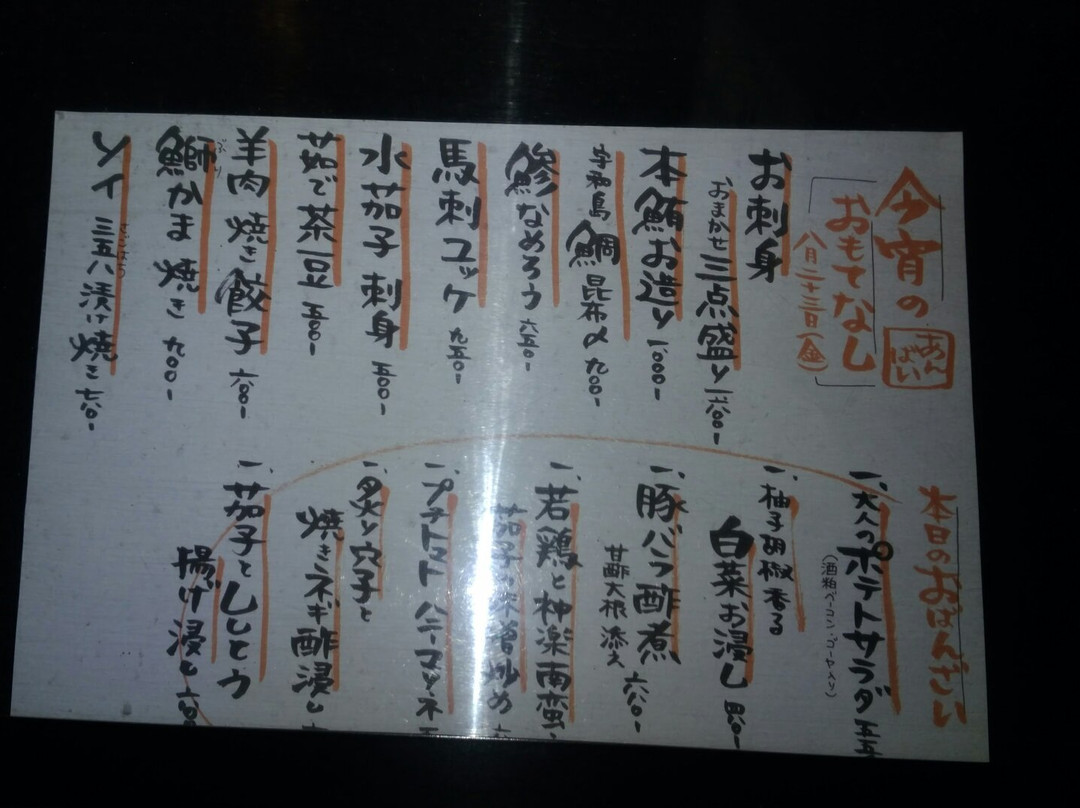 今宵の
おもてなし
八月二十三日(金)
あんばい
お刺身
おまかせ三点盛り 一六〇〇-
本鮪お造り 一〇〇〇-
宇和島 鯛昆布〆 九〇〇-
鯵なめろう 六五〇-
馬刺ユッケ 九五〇-
水茄子刺身 五〇〇-
茹で茶豆 五〇〇-
羊肉焼き餃子 六〇〇-
鰤かま焼き 九〇〇-
ぶり
ソイ 三五八漬け焼き 七八〇-
本日のおばんざい
一、大人のポテトサラダ
(酒粕ベーコン・
一、柚子胡椒香る
白菜お浸し
一、豚バラ酢煮
甘酢大根添え 六八〇-
一、若鶏と
茄子
炒め
一、プチトマト
一、炙り穴子と
焼きネギ酢浸し
一、茄子とししとう
揚げ浸し